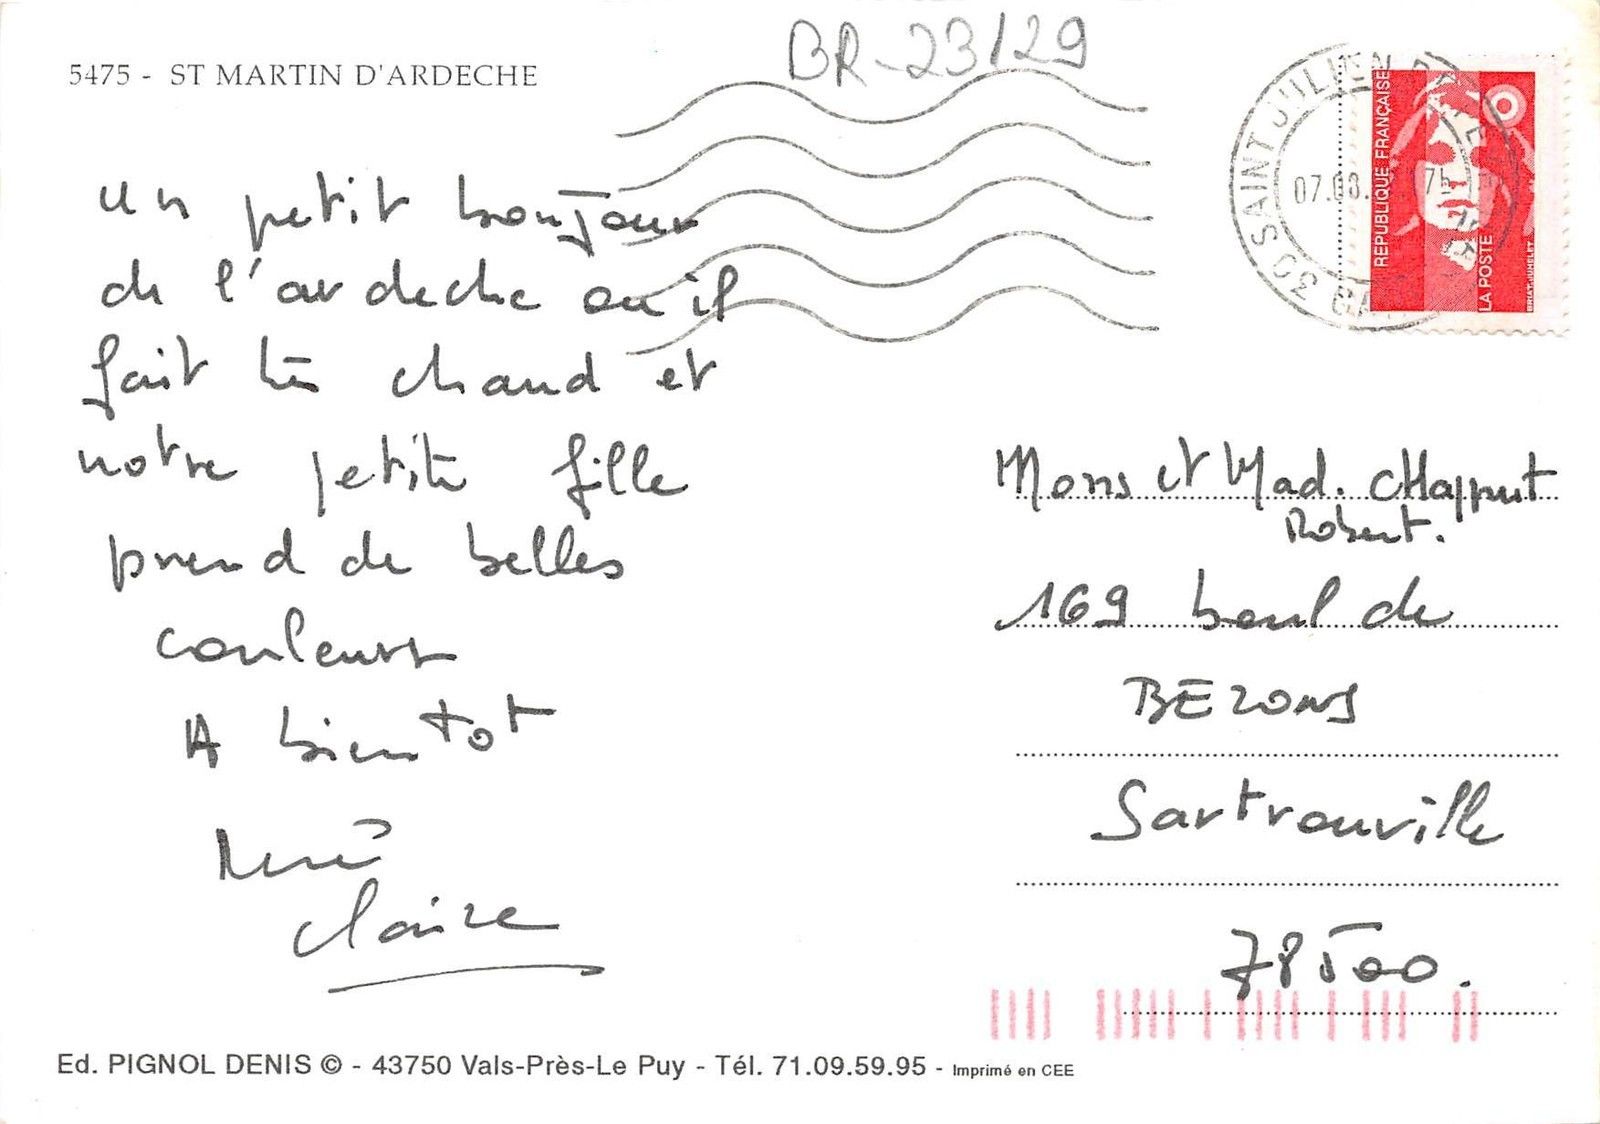 BR-23/29
5475 - ST MARTIN D'ARDECHE
SAINT JULIEN DE
07.08.
30 GARD
REPUBLIQUE FRANÇAISE
LA POSTE
BRIAT-JUMELET
un petit bonjour
de l'ardeche ou il
fait très chaud et
notre petite fille
prend de belles
couleurs
A bientot
René
Claire
Mons et Mad. CHapput
Robert.
169 boul de
BEZONS
Sartrouville
78500.
Ed. PIGNOL DENIS © - 43750 Vals-Près-Le Puy - Tél. 71.09.59.95 - Imprimé en CEE